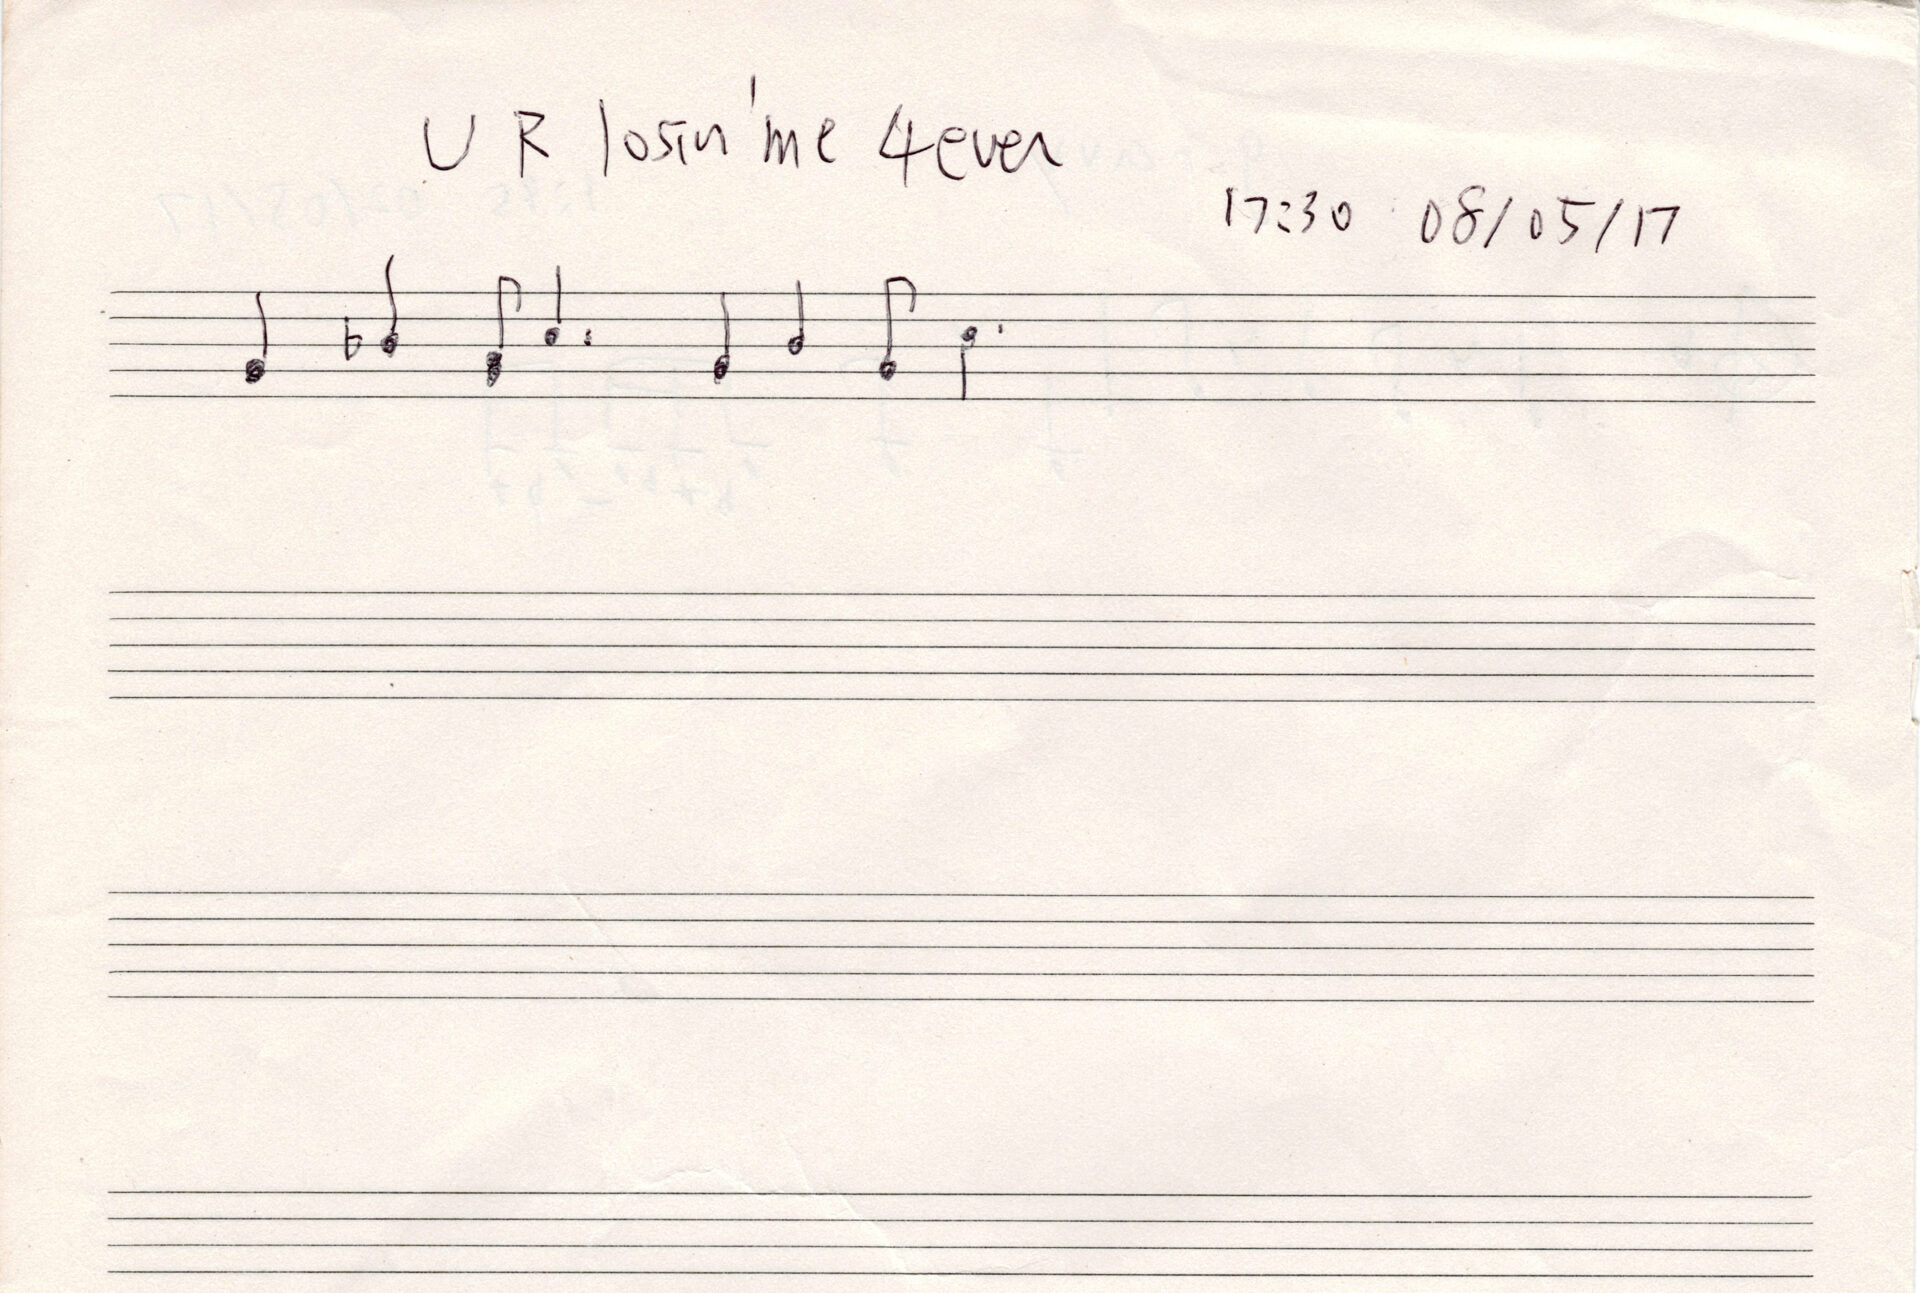 U R losin' me 4ever
17:30 08/05/17